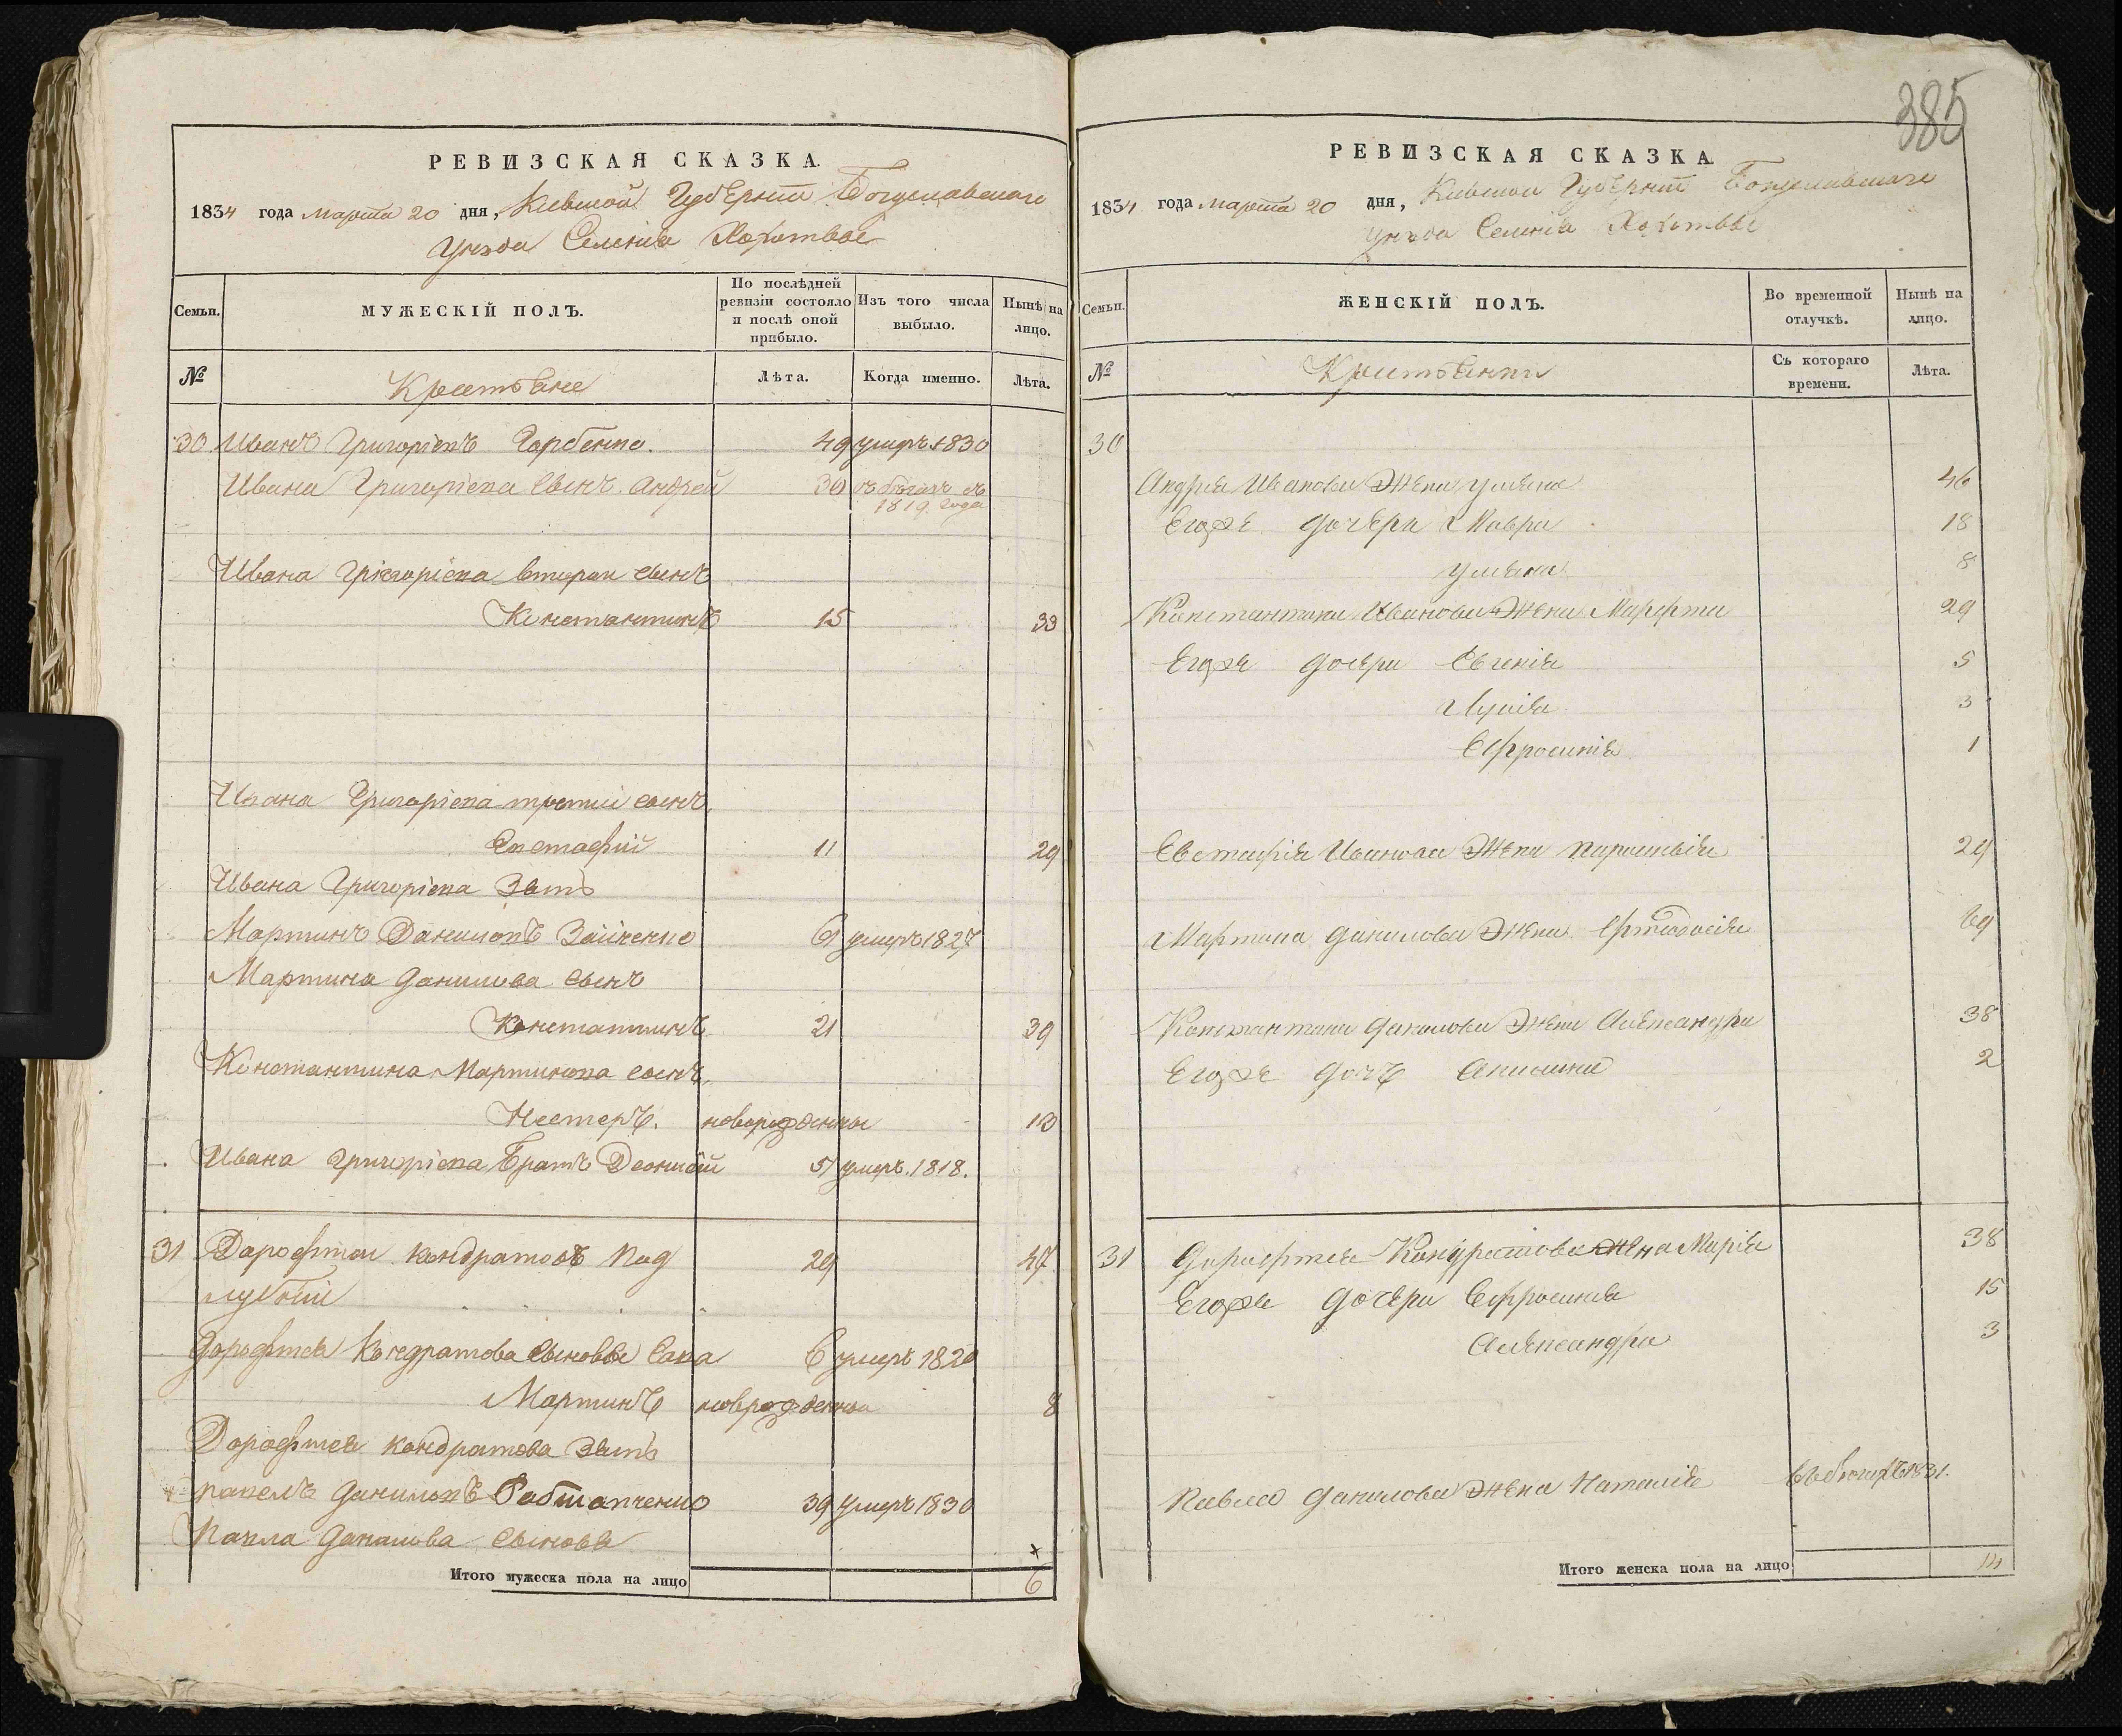 385
РЕВИЗСКАЯ СКАЗКА.
1834 года марта 20 дня, Киевской Губернии Богуславскаго
Уезда Селения Хохитвы
Семьи. МУЖЕСКІЙ ПОЛЪ. По послѣдней ревизіи состояло и послѣ оной прибыло. Изъ того числа выбыло. Нынѣ на лицо.
№ Крестьяне Лѣта. Когда именно. Лѣта.
30 Иванъ Григоріевъ Гарбенко. 49 умеръ 1830
Ивана Григоріева Сынъ Андрей 30 въ бегахъ съ
1819 Года
Ивана Григоріева второй сынъ
Константинъ 15 33
Ивана Григоріева третий сынъ
Евстафій 11 29
Ивана Григоріева Зять
Мартинъ Даниловъ Заиченко 61 умеръ 1827
Мартина Данилова сынъ
Константинъ 21 39
Константина Мартинова сынъ
Нестеръ. новорожденны 13
Ивана Григоріева Братъ Леонтій 51 умеръ. 1818.
31 Дарофтеи Кондратовъ Под 29 47
лубный
Дорофтея Кондратова Сыновья Сава 6 умеръ 1820
Мартинъ новорожденны 8
Дорофтея Кондратова Зять
Павелъ Даниловъ 39 умеръ 1830
Павла Данилова Сыновя
Итого мужеска пола на лицо 6
РЕВИЗСКАЯ СКАЗКА.
1834 года марта 20 дня, Киевскои Губернии Богуславскаго
Уезда Селенія Хохитвы
Семьи. ЖЕНСКІЙ ПОЛЪ. Во временной отлучкѣ. Нынѣ на лицо.
№ Крестьянки Съ котораго времени. Лѣта.
30
Андрея Иванова Жена Уляна 46
Егоже дочери Мавра 18
Уляна 8
Константина Иванова Жена Марфта 29
Егоже дочери Евгенія 5
Лукія 3
Ефросинія 1
Евстафія Иванова Жена Параскивія 29
Мартина Данилова Жена Фтеодосія 69
Константина Данилова Жена Александра 38
Егоже дочъ Акилина 2
31 Дорофтея Кондратова жена Марія 38
Егоже дочери Ефросинія 15
Александра 3
Павла Данилова Жена Наталія въ бегахъ 1831.
Итого женска пола на лицо 14